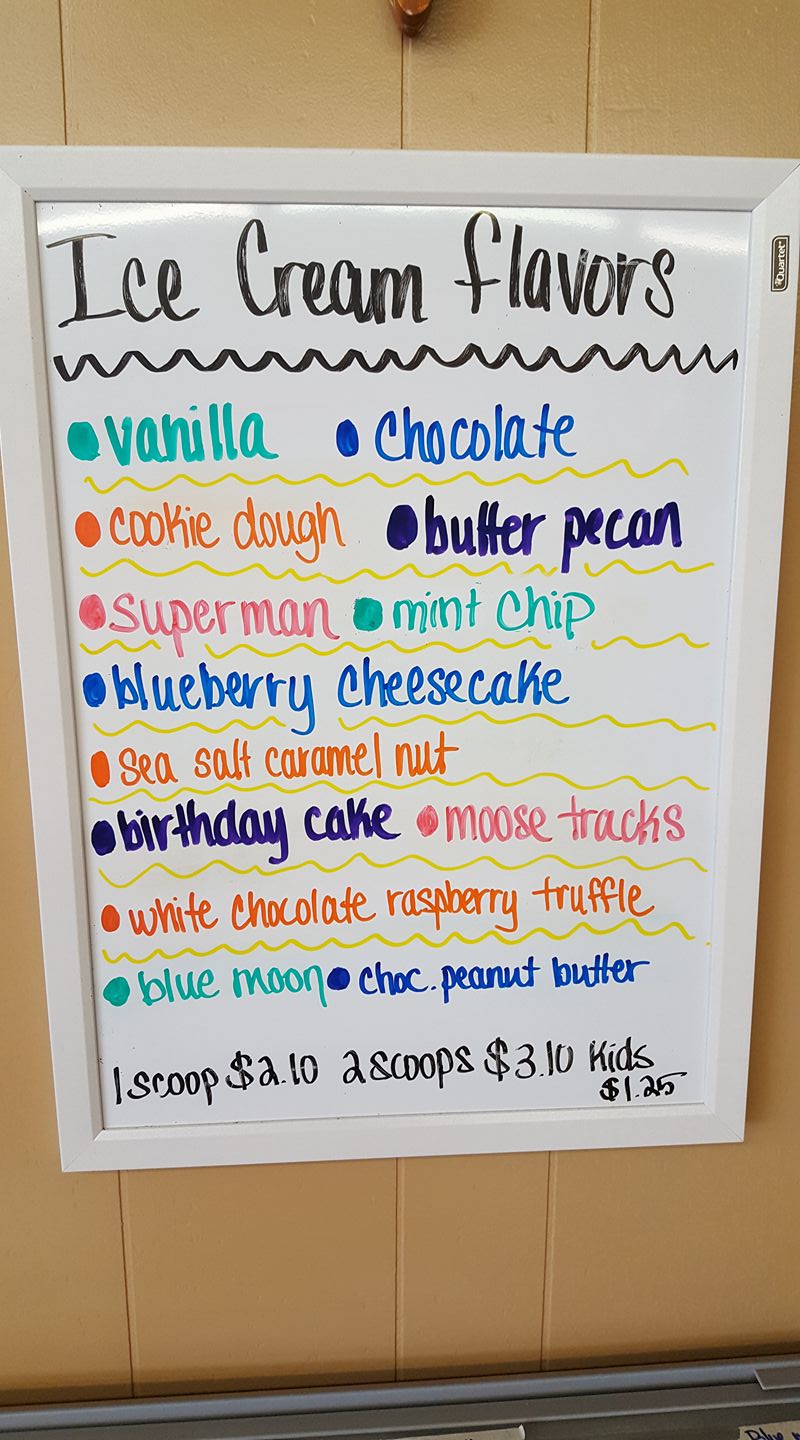 Ice Cream flavors
Quartet
• vanilla • Chocolate
• cookie dough • butter pecan
• superman • mint chip
• blueberry cheesecake
• sea salt caramel nut
• birthday cake • moose tracks
• white chocolate raspberry truffle
• blue moon • choc. peanut butter
1 scoop $2.10 2 scoops $3.10 Kids
$1.25